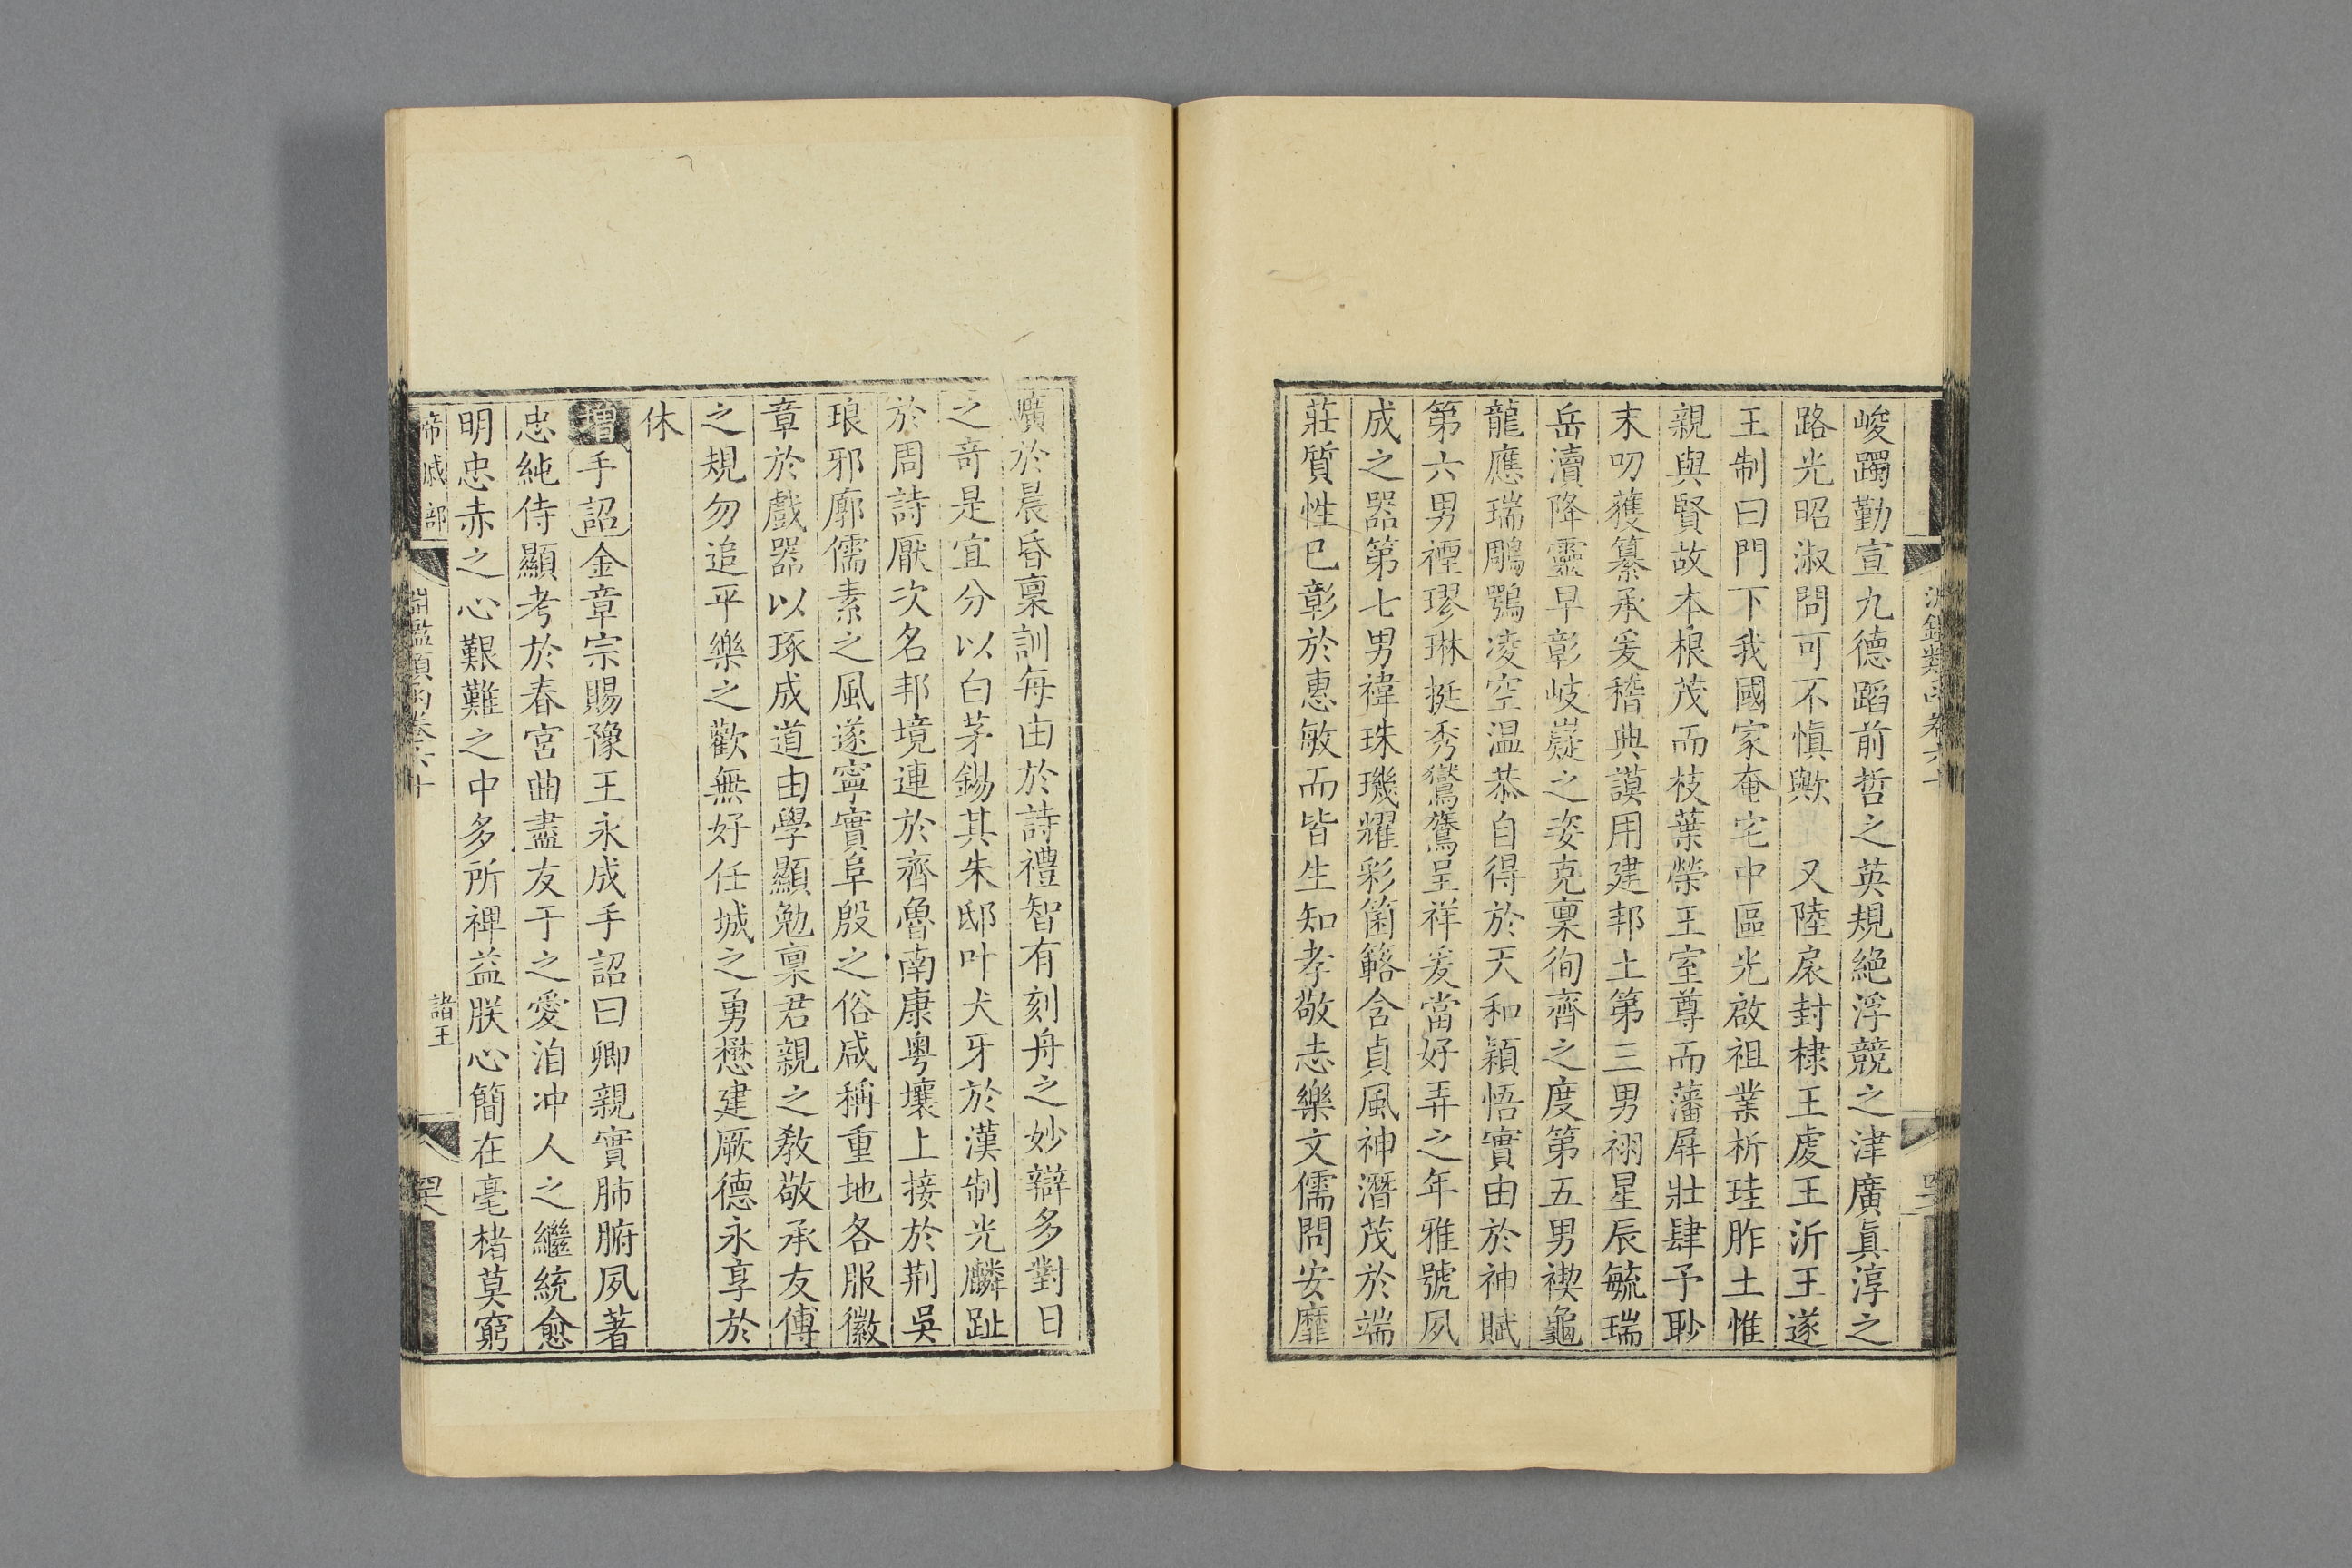 峻躅勤宣九德蹈前哲之英規絶浮競之津廣眞淳之
路光昭淑問可不愼歟 又陸扆封棣王虔王沂王遂
王制曰門下我國家奄宅中區光啟祖業析珪胙土惟
親與賢故本根茂而枝葉榮王室尊而藩屏壯肆予眇
末叨獲纂承爰稽典謨用建邦土第三男祤星辰毓瑞
岳瀆降靈早彰岐嶷之姿克稟徇齊之度第五男禊龜
龍應瑞鵰鶚凌空温恭自得於天和穎悟實由於神賦
第六男禋璆琳挺秀鸞鶱呈祥爰當好弄之年雅號夙
成之器第七男禕珠璣耀彩箘簵含貞風神潛茂於端
莊質性已彰於惠敏而皆生知孝敬志樂文儒問安靡
曠於晨昏稟訓每由於詩禮智有刻舟之妙辯多對日
之奇是宜分以白茅錫其朱邸叶犬牙於漢制光麟趾
於周詩厭次名邦境連於齊魯南康粤壤上接於荆吳
琅邪廓儒素之風遂寧實阜殷之俗咸稱重地各服徽
章於戲器以琢成道由學顯勉稟君親之教敬承友傅
之規勿追平樂之歡無好任城之勇懋建厥德永享於
休
增手詔金章宗賜豫王永成手詔曰卿親實肺腑夙著
忠純侍顯考於春宮曲盡友于之愛洎冲人之繼統愈
明忠赤之心艱難之中多所裨益朕心簡在毫楮莫窮
帝戚部 淵鑑類函卷六十 諸王